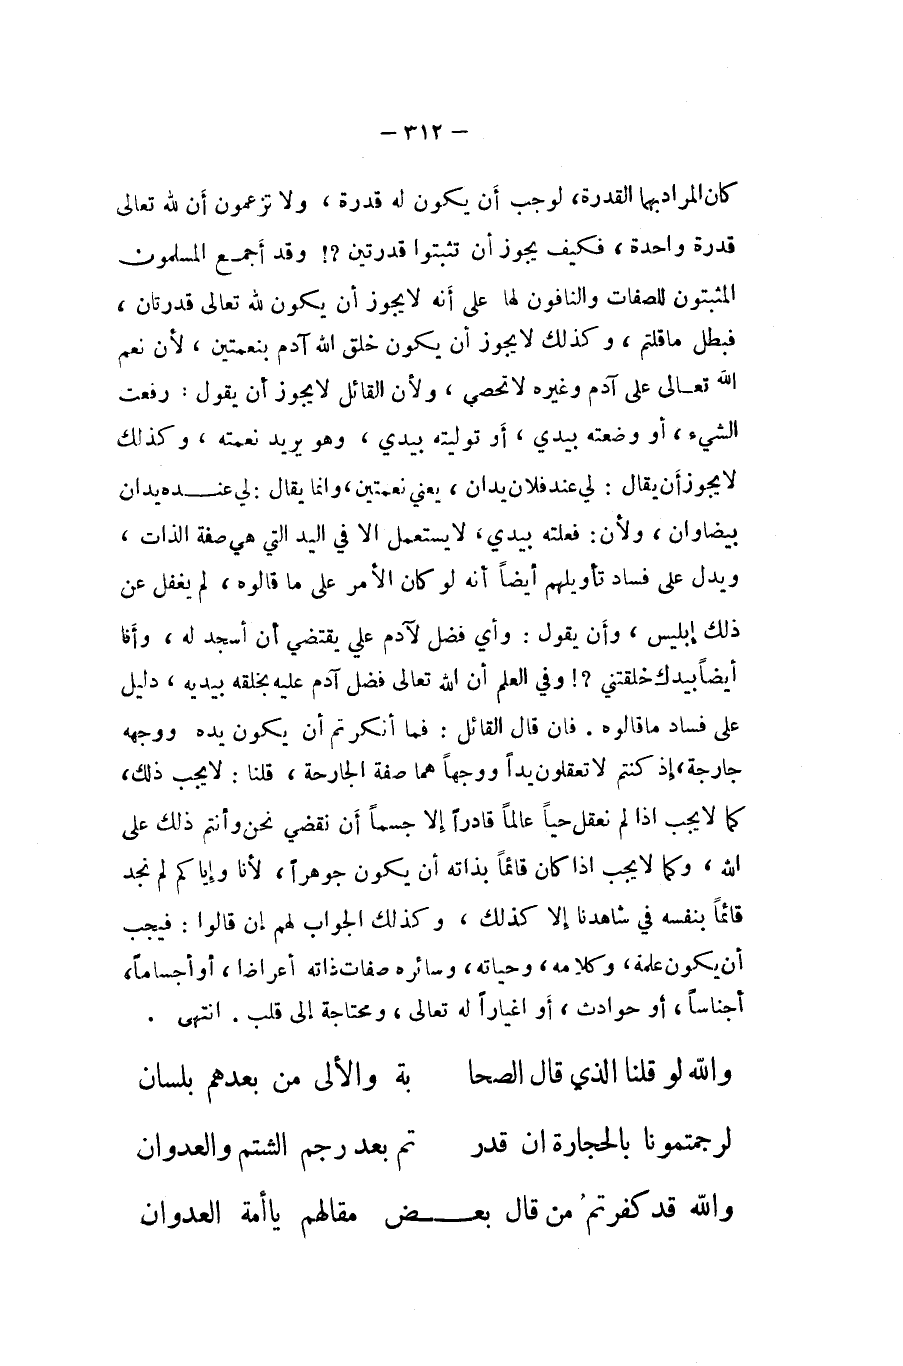 — ٣١٢ —
كان المراد بها القدرة، لوجب أن يكون له قدرة ، ولا تزعمون أن لله تعالى
قدرة واحدة ، فكيف يجوز أن تثبتوا قدرتين ?! وقد أجمع المسلمون
المثبتون للصفات والنافون لها على أنه لايجوز أن يكون لله تعالى قدرتان ،
فبطل ماقلتم ، وكذلك لايجوز أن يكون خلق الله آدم بنعمتين ، لأن نعم
الله تعالى على آدم وغيره لاتحصي ، ولأن القائل لايجوز أن يقول : رفعت
الشيء ، أو وضعته بيدي ، أو توليته بيدي ، وهو يريد نعمته ، وكذلك
لايجوز أن يقال : لي عند فلان يدان ، يعني نعمتين ، وانما يقال : لي عنده يدان
بيضاوان ، ولأن : فعلته بيدي ، لايستعمل الا في اليد التي هي صفة الذات ،
ويدل على فساد تأويلهم أيضاً أنه لو كان الأمر على ما قالوه ، لم يغفل عن
ذلك إبليس ، وأن يقول : وأي فضل لآدم علي يقتضي أن أسجد له ، وأنا
أيضاً بيدك خلقتني ?! وفي العلم أن الله تعالى فضل آدم عليه بخلقه بيديه ، دليل
على فساد ماقالوه . فان قال القائل : فما أنكرتم أن يكون يده ووجهه
جارحة ، إذ كنتم لاتعقلون يداً ووجهاً هما صفة الجارحة ، قلنا : لايجب ذلك ،
كما لايجب اذا لم نعقل حياً عالماً قادراً إلا جسماً أن نقضي نحن وأنتم ذلك على
الله ، وكما لايجب اذا كان قائماً بذاته أن يكون جوهراً ، لأنا وإياكم لم نجد
قائماً بنفسه في شاهدنا إلا كذلك ، وكذلك الجواب لهم إن قالوا : فيجب
أن يكون علمه ، وكلامه ، وحياته ، وسائره صفات ذاته أعراضا ، أو أجساماً ،
أجناساً ، أو حوادث ، أو اغياراً له تعالى ، ومحتاجة إلى قلب . انتهى .
والله لو قلنا الذي قال الصحا بة والألى من بعدهم بلسان
لرجمتمونا بالحجارة ان قدر تم بعد رجم الشتم والعدوان
والله قد كفرتمُ من قال بعض مقالهم ياأمة العدوان